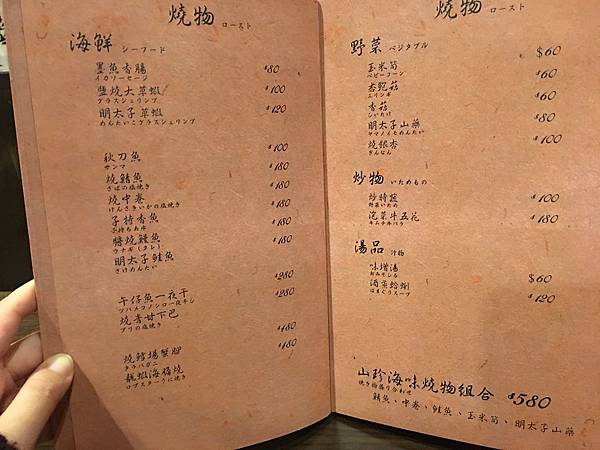 燒物 ロースト
海鮮 シーフード
墨魚香腸 $80
イカソーセージ
鹽燒大草蝦 $100
グラスシュリンプ
明太子草蝦 $120
めんたいこグラスシュリンプ
秋刀魚 $100
サンマ
燒鯖魚 $180
さばの塩焼き
燒中卷 $180
けんさきいかの塩焼き
子持香魚 $180
子持ちあゆ
醬燒鰻魚 $180
ウナギ(タレ)
明太子鮭魚 $180
さけめんたい
午仔魚一夜干 $280
ツバメコノシロ一夜干し
燒青甘下巴 $280
ブリの塩焼き
燒鱈場蟹腳 $180
タラバガニ
龍蝦海膽燒 $180
ロブスターうに焼き
燒物 ロースト
野菜 ベジタブル
玉米筍 $60
ベビーコーン
杏鮑菇 $60
エリンギ
香菇 $60
しいたけ
明太子山藥 $80
ヤマノイモめんたい
燒銀杏 $100
ぎんなん
炒物 いためもの
炒時蔬 $100
野菜いため
泡菜牛五花 $180
キムチ牛バラ
湯品 汁物
味增湯 $60
おみそしる
酒蒸蛤蜊 $120
はまぐりスープ
山珍海味燒物組合 $580
焼き物盛り合わせ
鯖魚、中卷、鮭魚、玉米筍、明太子山藥